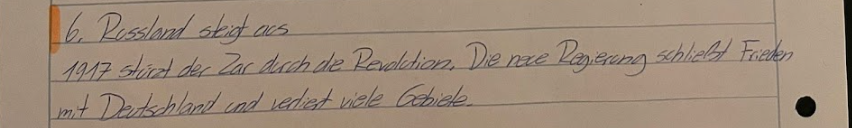 6. Russland steigt aus
1917 stürzt der Zar durch die Revolution. Die neue Regierung schließt Frieden
mit Deutschland und verliert viele Gebiete.